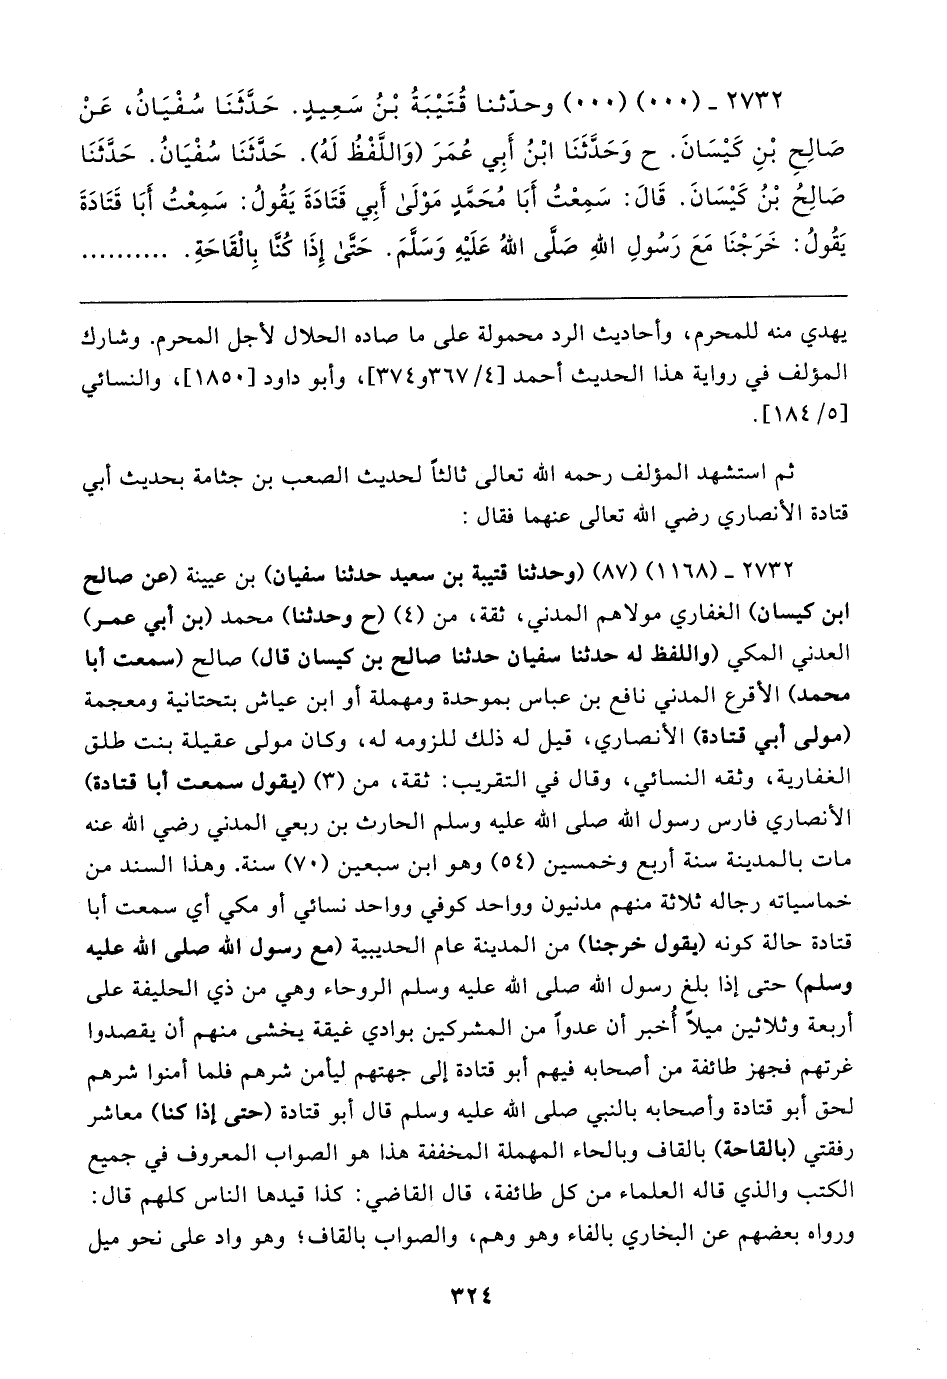 ٢٧٣٢ - (٠٠٠) (٠٠٠) وحدّثنا قُتَيْبَةُ بْنُ سَعِيدٍ. حَدَّثَنَا سُفْيَانُ، عَنْ
صَالِحِ بْنِ كَيْسَانَ. ح وَحَدَّثَنَا ابْنُ أَبِي عُمَرَ (وَاللَّفْظُ لَهُ). حَدَّثَنَا سُفْيَانُ. حَدَّثَنَا
صَالِحُ بْنُ كَيْسَانَ. قَالَ: سَمِعْتُ أَبَا مُحَمَّدٍ مَوْلَىٰ أَبِي قَتَادَةَ يَقُولُ: سَمِعْتُ أَبَا قَتَادَةَ
يَقُولُ: خَرَجْنَا مَعَ رَسُولِ اللهِ صَلَّى اللهُ عَلَيْهِ وَسَلَّمَ. حَتَّىٰ إِذَا كُنَّا بِالْقَاحَةِ. ..........
يهدي منه للمحرم، وأحاديث الرد محمولة على ما صاده الحلال لأجل المحرم. وشارك
المؤلف في رواية هذا الحديث أحمد [٤/ ٣٦٧و٣٧٤]، وأبو داود [١٨٥٠]، والنسائي
[٥/ ١٨٤].
ثم استشهد المؤلف رحمه الله تعالى ثالثاً لحديث الصعب بن جثامة بحديث أبي
قتادة الأنصاري رضي الله تعالى عنهما فقال :
٢٧٣٢ - (١١٦٨) (٨٧) (وحدثنا قتيبة بن سعيد حدثنا سفيان) بن عيينة (عن صالح
ابن كيسان) الغفاري مولاهم المدني، ثقة، من (٤) (ح وحدثنا) محمد (بن أبي عمر)
العدني المكي (واللفظ له حدثنا سفيان حدثنا صالح بن كيسان قال) صالح (سمعت أبا
محمد) الأقرع المدني نافع بن عباس بموحدة ومهملة أو ابن عياش بتحتانية ومعجمة
(مولى أبي قتادة) الأنصاري، قيل له ذلك للزومه له، وكان مولى عقيلة بنت طلق
الغفارية، وثقه النسائي، وقال في التقريب: ثقة، من (٣) (يقول سمعت أبا قتادة)
الأنصاري فارس رسول الله صلى الله عليه وسلم الحارث بن ربعي المدني رضي الله عنه
مات بالمدينة سنة أربع وخمسين (٥٤) وهو ابن سبعين (٧٠) سنة. وهذا السند من
خماسياته رجاله ثلاثة منهم مدنيون وواحد كوفي وواحد نسائي أو مكي أي سمعت أبا
قتادة حالة كونه (يقول خرجنا) من المدينة عام الحديبية (مع رسول الله صلى الله عليه
وسلم) حتى إذا بلغ رسول الله صلى الله عليه وسلم الروحاء وهي من ذي الحليفة على
أربعة وثلاثين ميلاً أُخبر أن عدواً من المشركين بوادي غيقة يخشى منهم أن يقصدوا
غرتهم فجهز طائفة من أصحابه فيهم أبو قتادة إلى جهتهم ليأمن شرهم فلما أمنوا شرهم
لحق أبو قتادة وأصحابه بالنبي صلى الله عليه وسلم قال أبو قتادة (حتى إذا كنا) معاشر
رفقتي (بالقاحة) بالقاف وبالحاء المهملة المخففة هذا هو الصواب المعروف في جميع
الكتب والذي قاله العلماء من كل طائفة، قال القاضي: كذا قيدها الناس كلهم قال:
ورواه بعضهم عن البخاري بالفاء وهو وهم، والصواب بالقاف؛ وهو واد على نحو ميل
٣٢٤